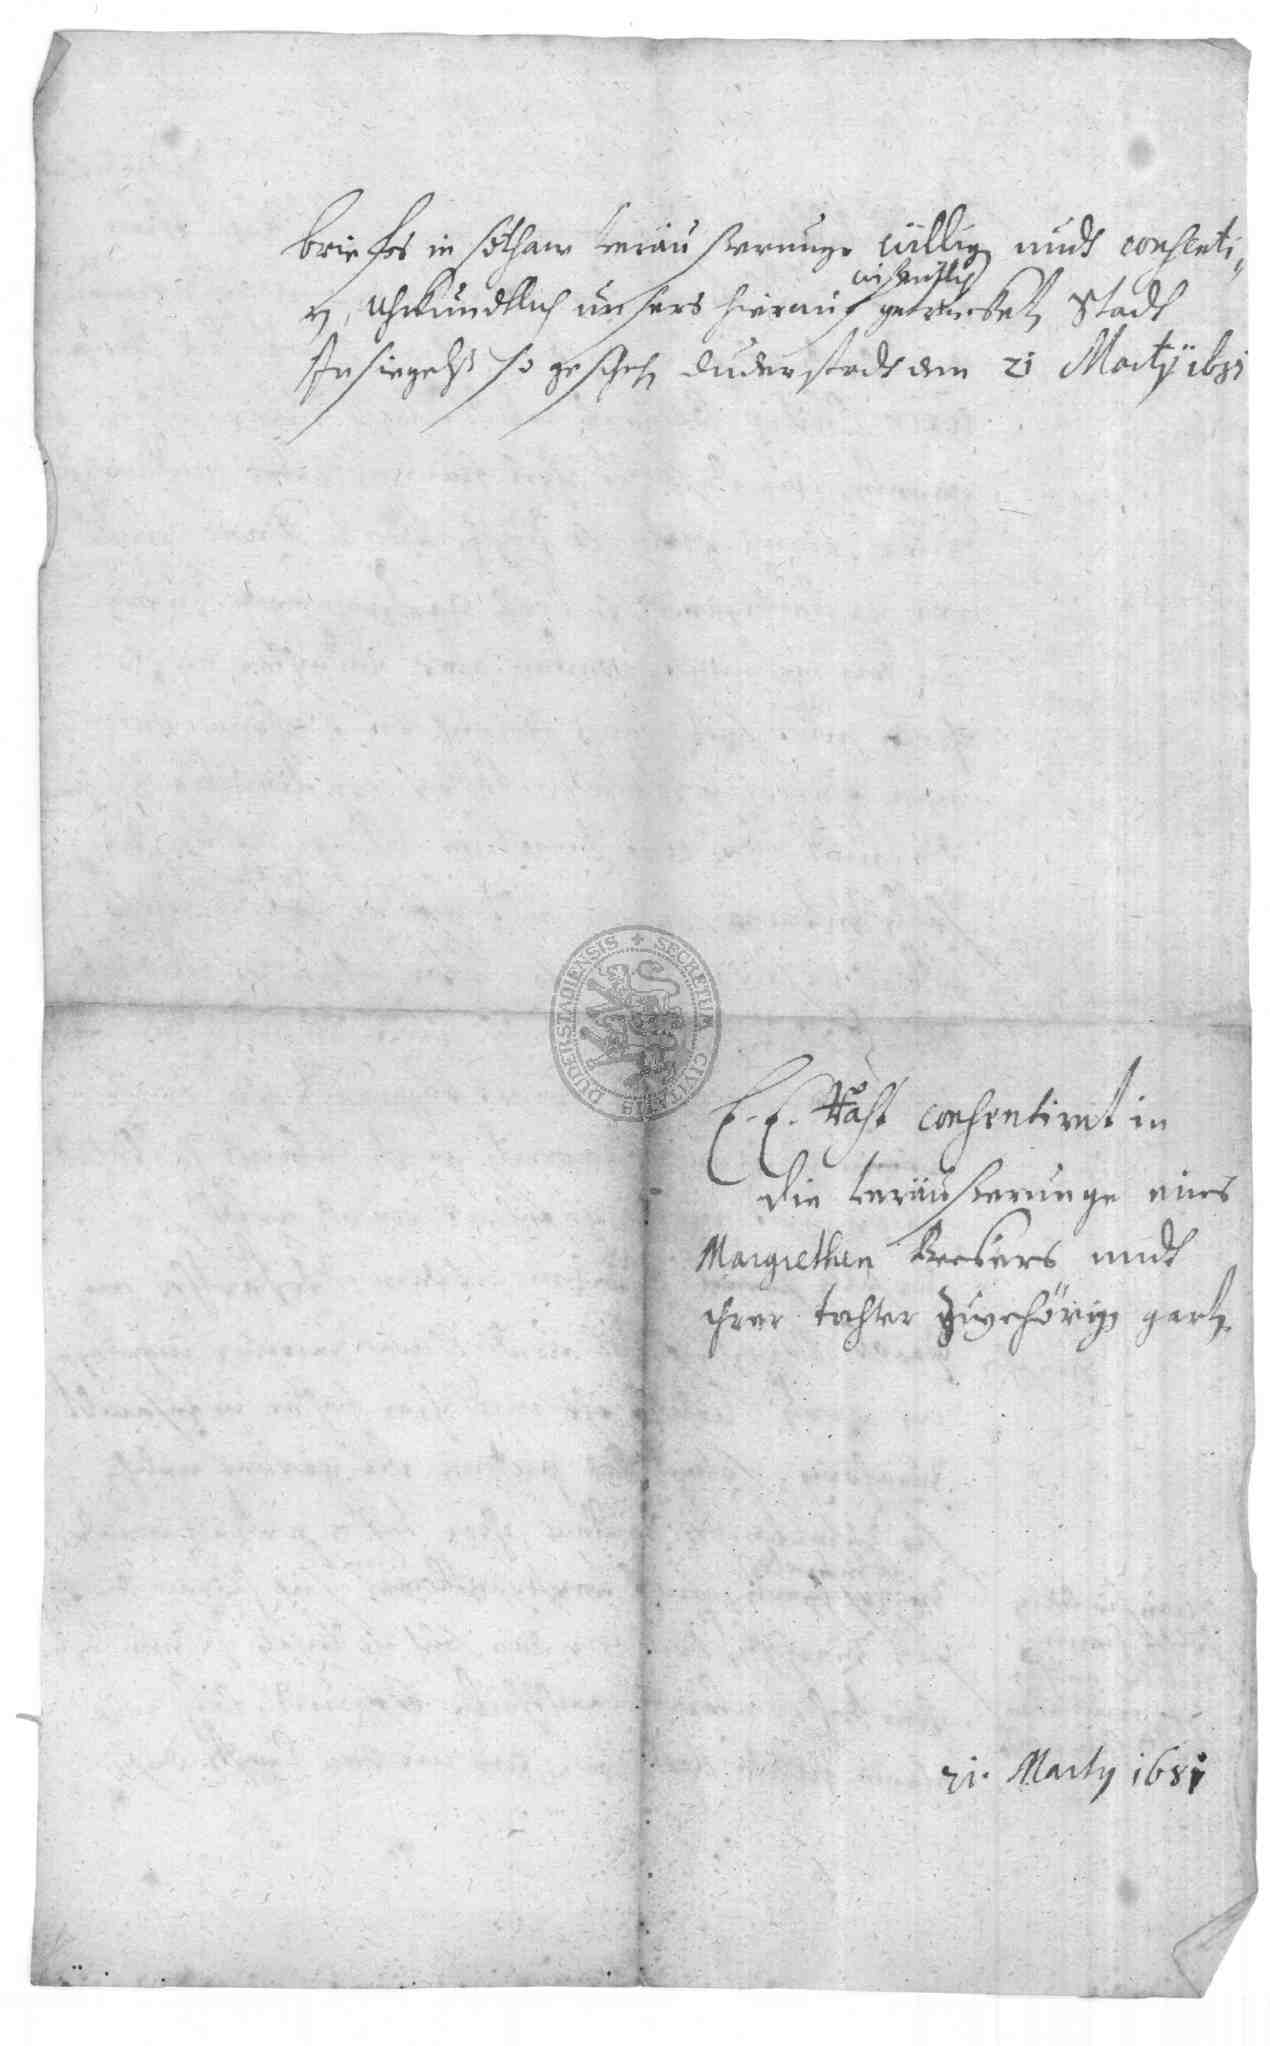 briefes in sothane veräußerunge willig undt consenti,,
wißentlich
n, Uhrkundtlich unsers hierauf getrucket Stadt
Insiegels so geschehen Duderstadt den 21 Marty 1681
SECRETUM CIVITATIS DUDERSTADIENSIS
E. E. Raht consentiret in
die veräußerunge eines
Margrethen Beckers undt
ihrer tochter zugehörigen garten
21. Marty 1681